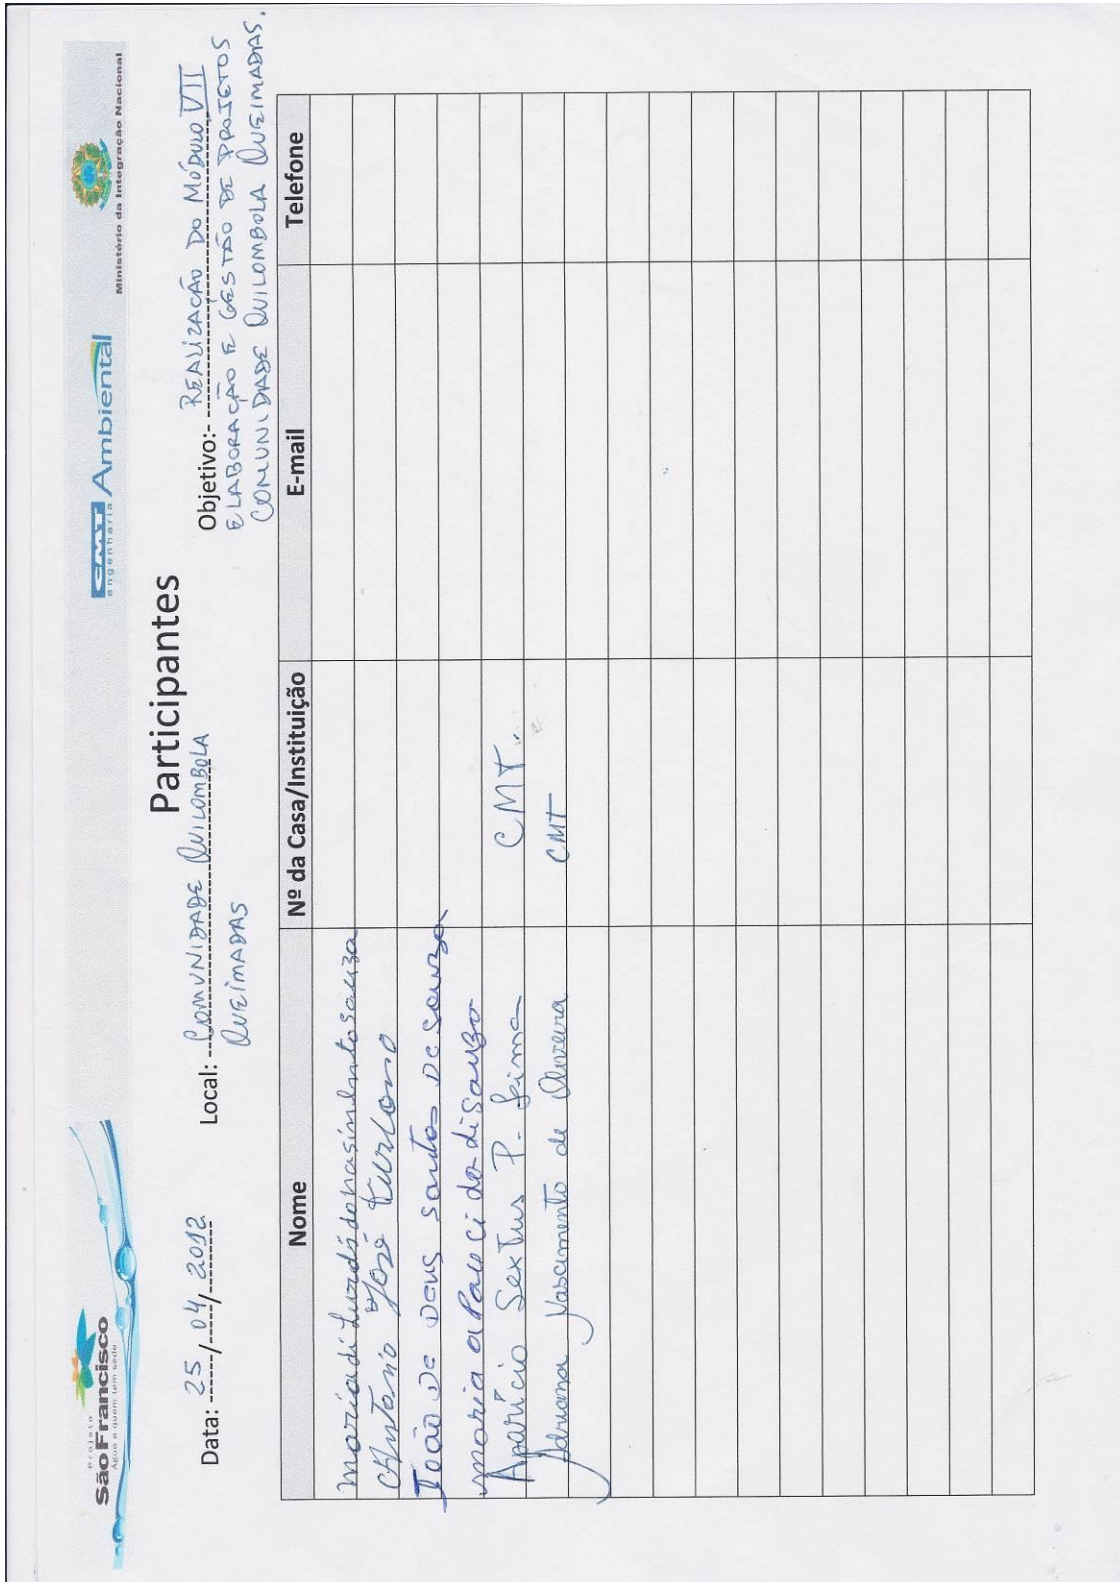 Projeto
São Francisco
Água a quem tem sede
CMT Ambiental
engenharia
Ministério da Integração Nacional
Participantes
Data: 25/04/2012 Local: COMUNIDADE QUILOMBOLA QUEIMADAS
Objetivo:- REALIZAÇÃO DO MÓDULO VII
ELABORAÇÃO E GESTÃO DE PROJETOS
COMUNIDADE QUILOMBOLA QUEIMADAS.
Nome Nº da Casa/Instituição E-mail Telefone
maria di Lurdi do nasimento souza
José
João De Deus Santos De Souza
maria aParecida di souza
Aparício Sextus P. Lima CMT..
Adriana Nascimento de Oliveira CMT